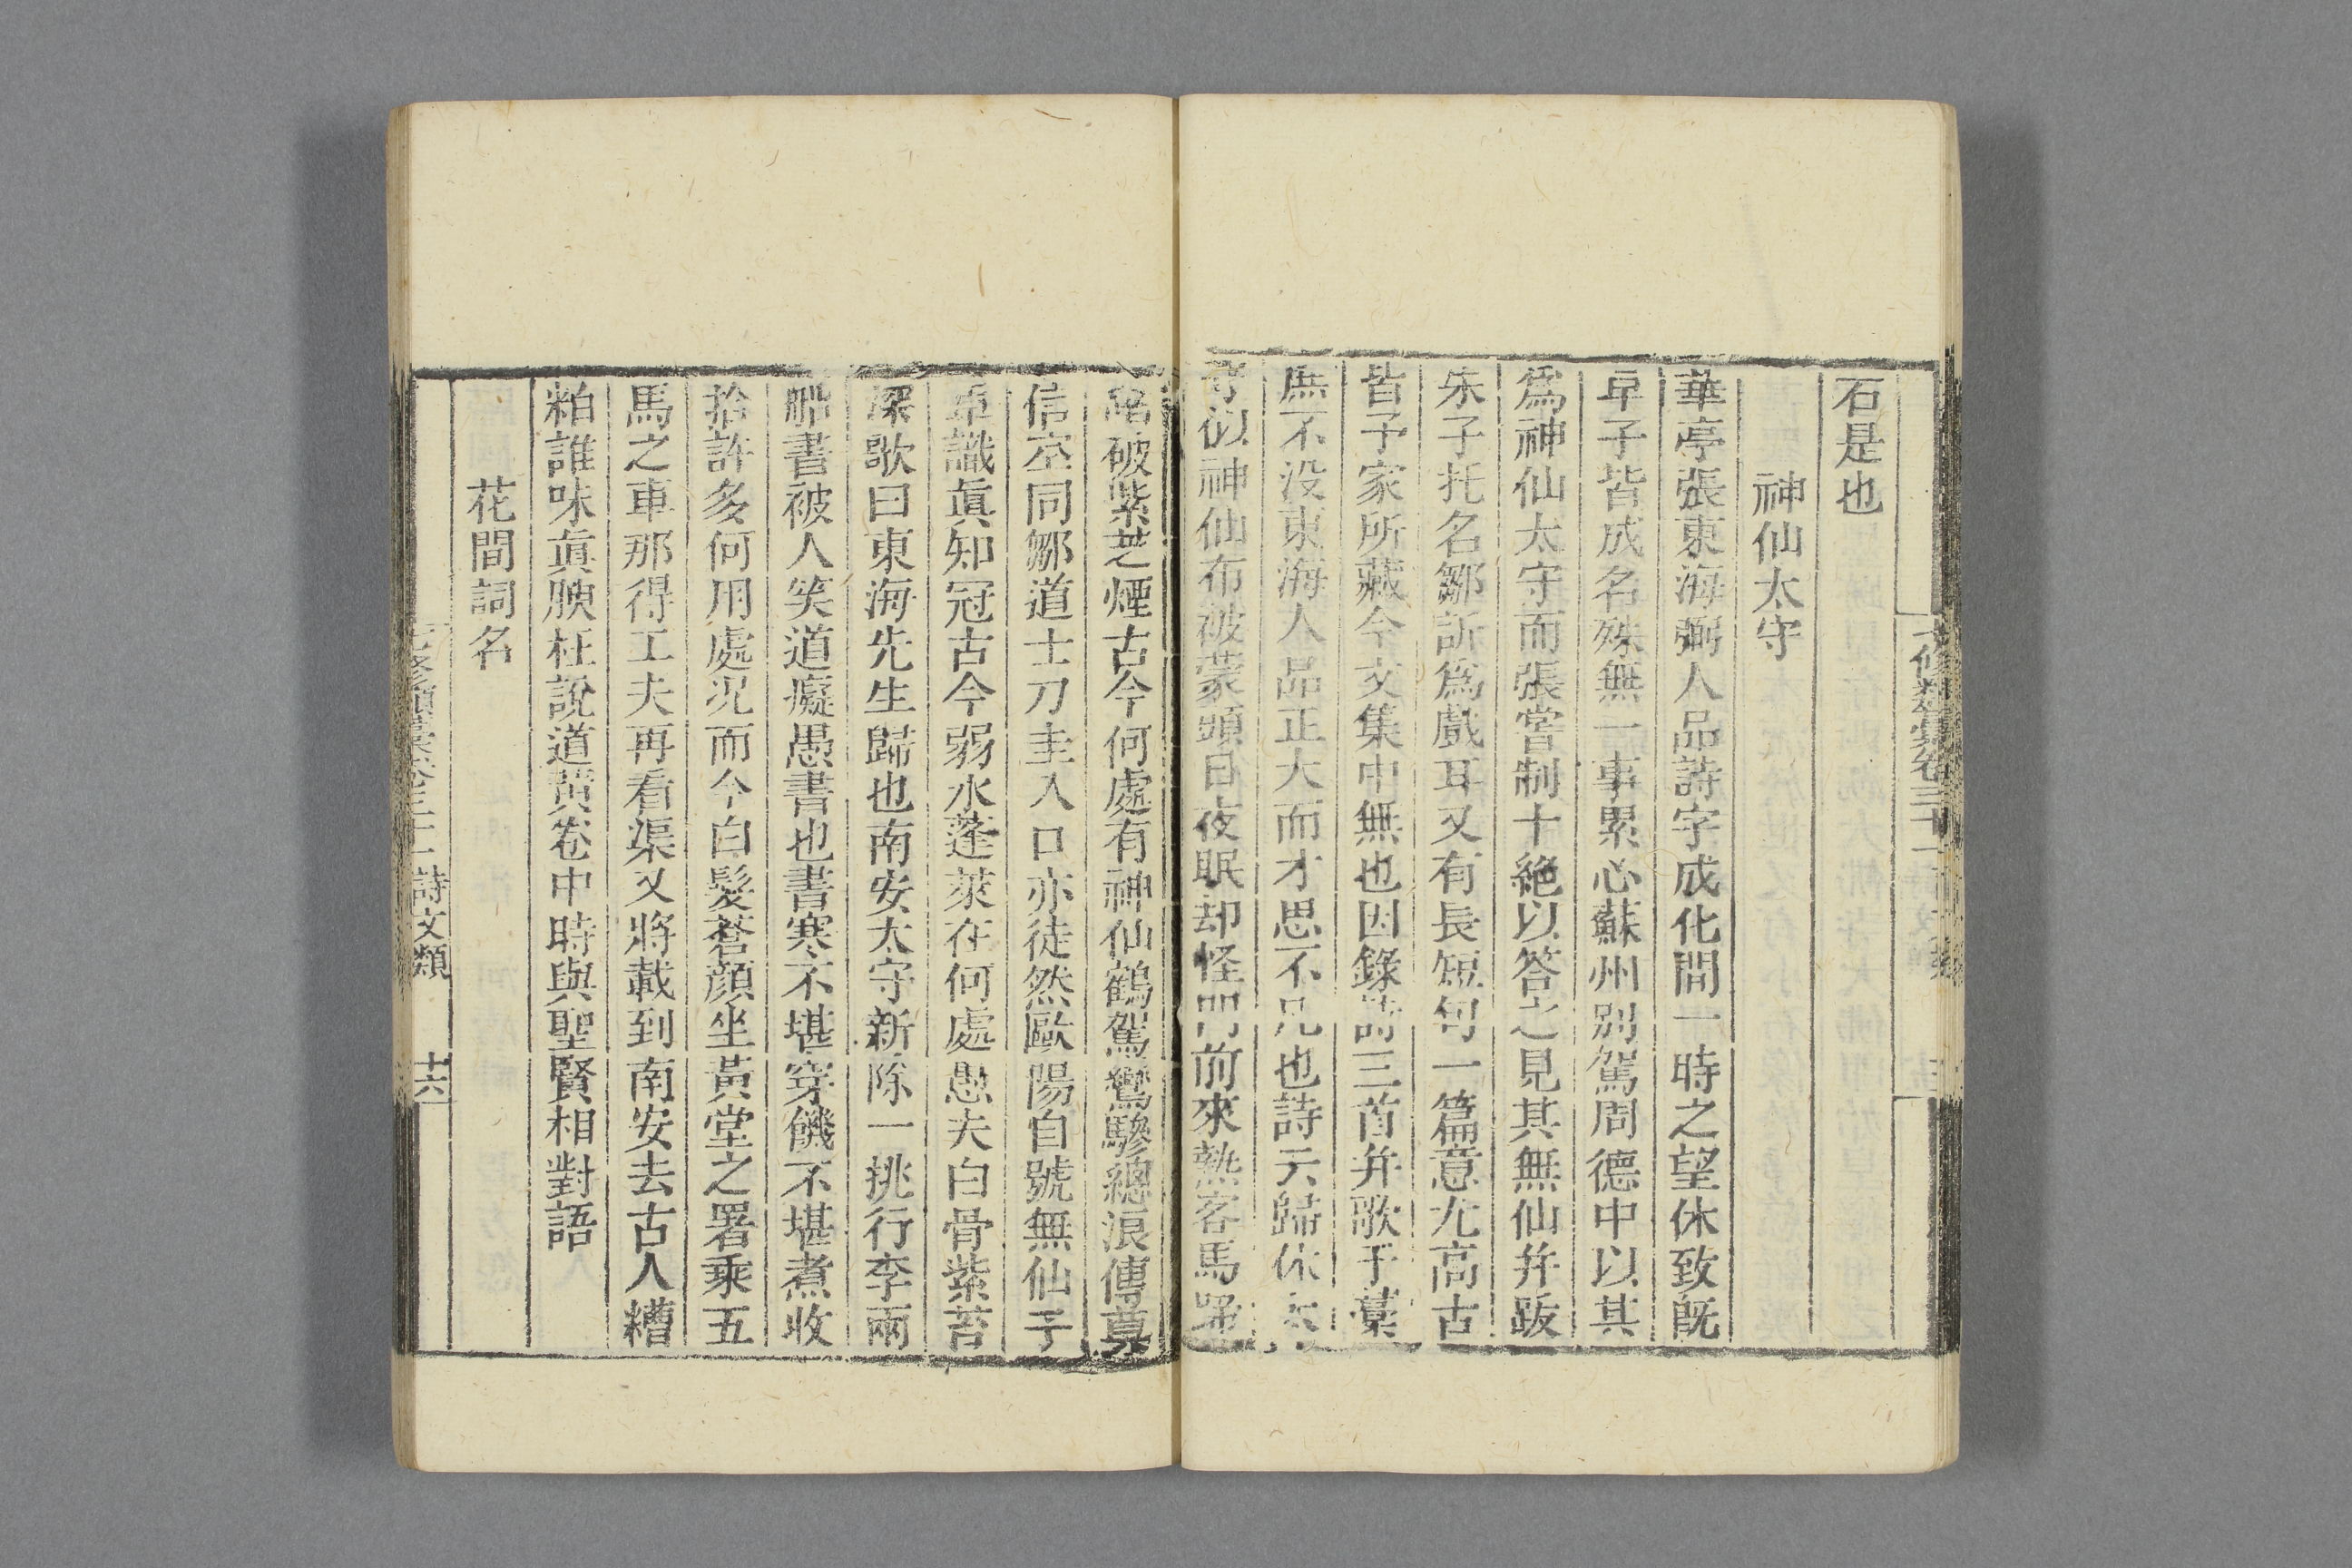 石是也
神仙太守
華亭張東海弼人品詩字成化間一時之望休致旣
卒子皆成名殊無一事累心蘇州別駕周德中以其
爲神仙太守而張嘗制十絶以答之見其無仙幷跋
朱子托名鄒訢爲戲耳又有長短句一篇意尤高古
皆予家所藏今文集中無也因錄詩三首幷歌于藁
庶不没東海人品正大而才思不凡也詩云歸休太
守似神仙布被蒙頭日夜眠却怪門前來熟客馬蹄
踏破紫芝煙古今何處有神仙鶴駕鸞驂總浪傳尊
信空同鄒道士刀圭入口亦徒然歐陽自號無仙子
卓識眞知冠古今弱水蓬萊在何處愚夫白骨紫苔
深歌曰東海先生歸也南安太守新除一挑行李兩
船書被人笑道癡愚書也書寒不堪穿饑不堪煮收
拾許多何用處况而今白髮蒼顏坐黃堂之署乘五
馬之車那得工夫再看渠又將載到南安去古人糟
粕誰味眞腴枉說道黃卷中時與聖賢相對語
花間詞名
七修類藁卷三十一 詩文類 十六